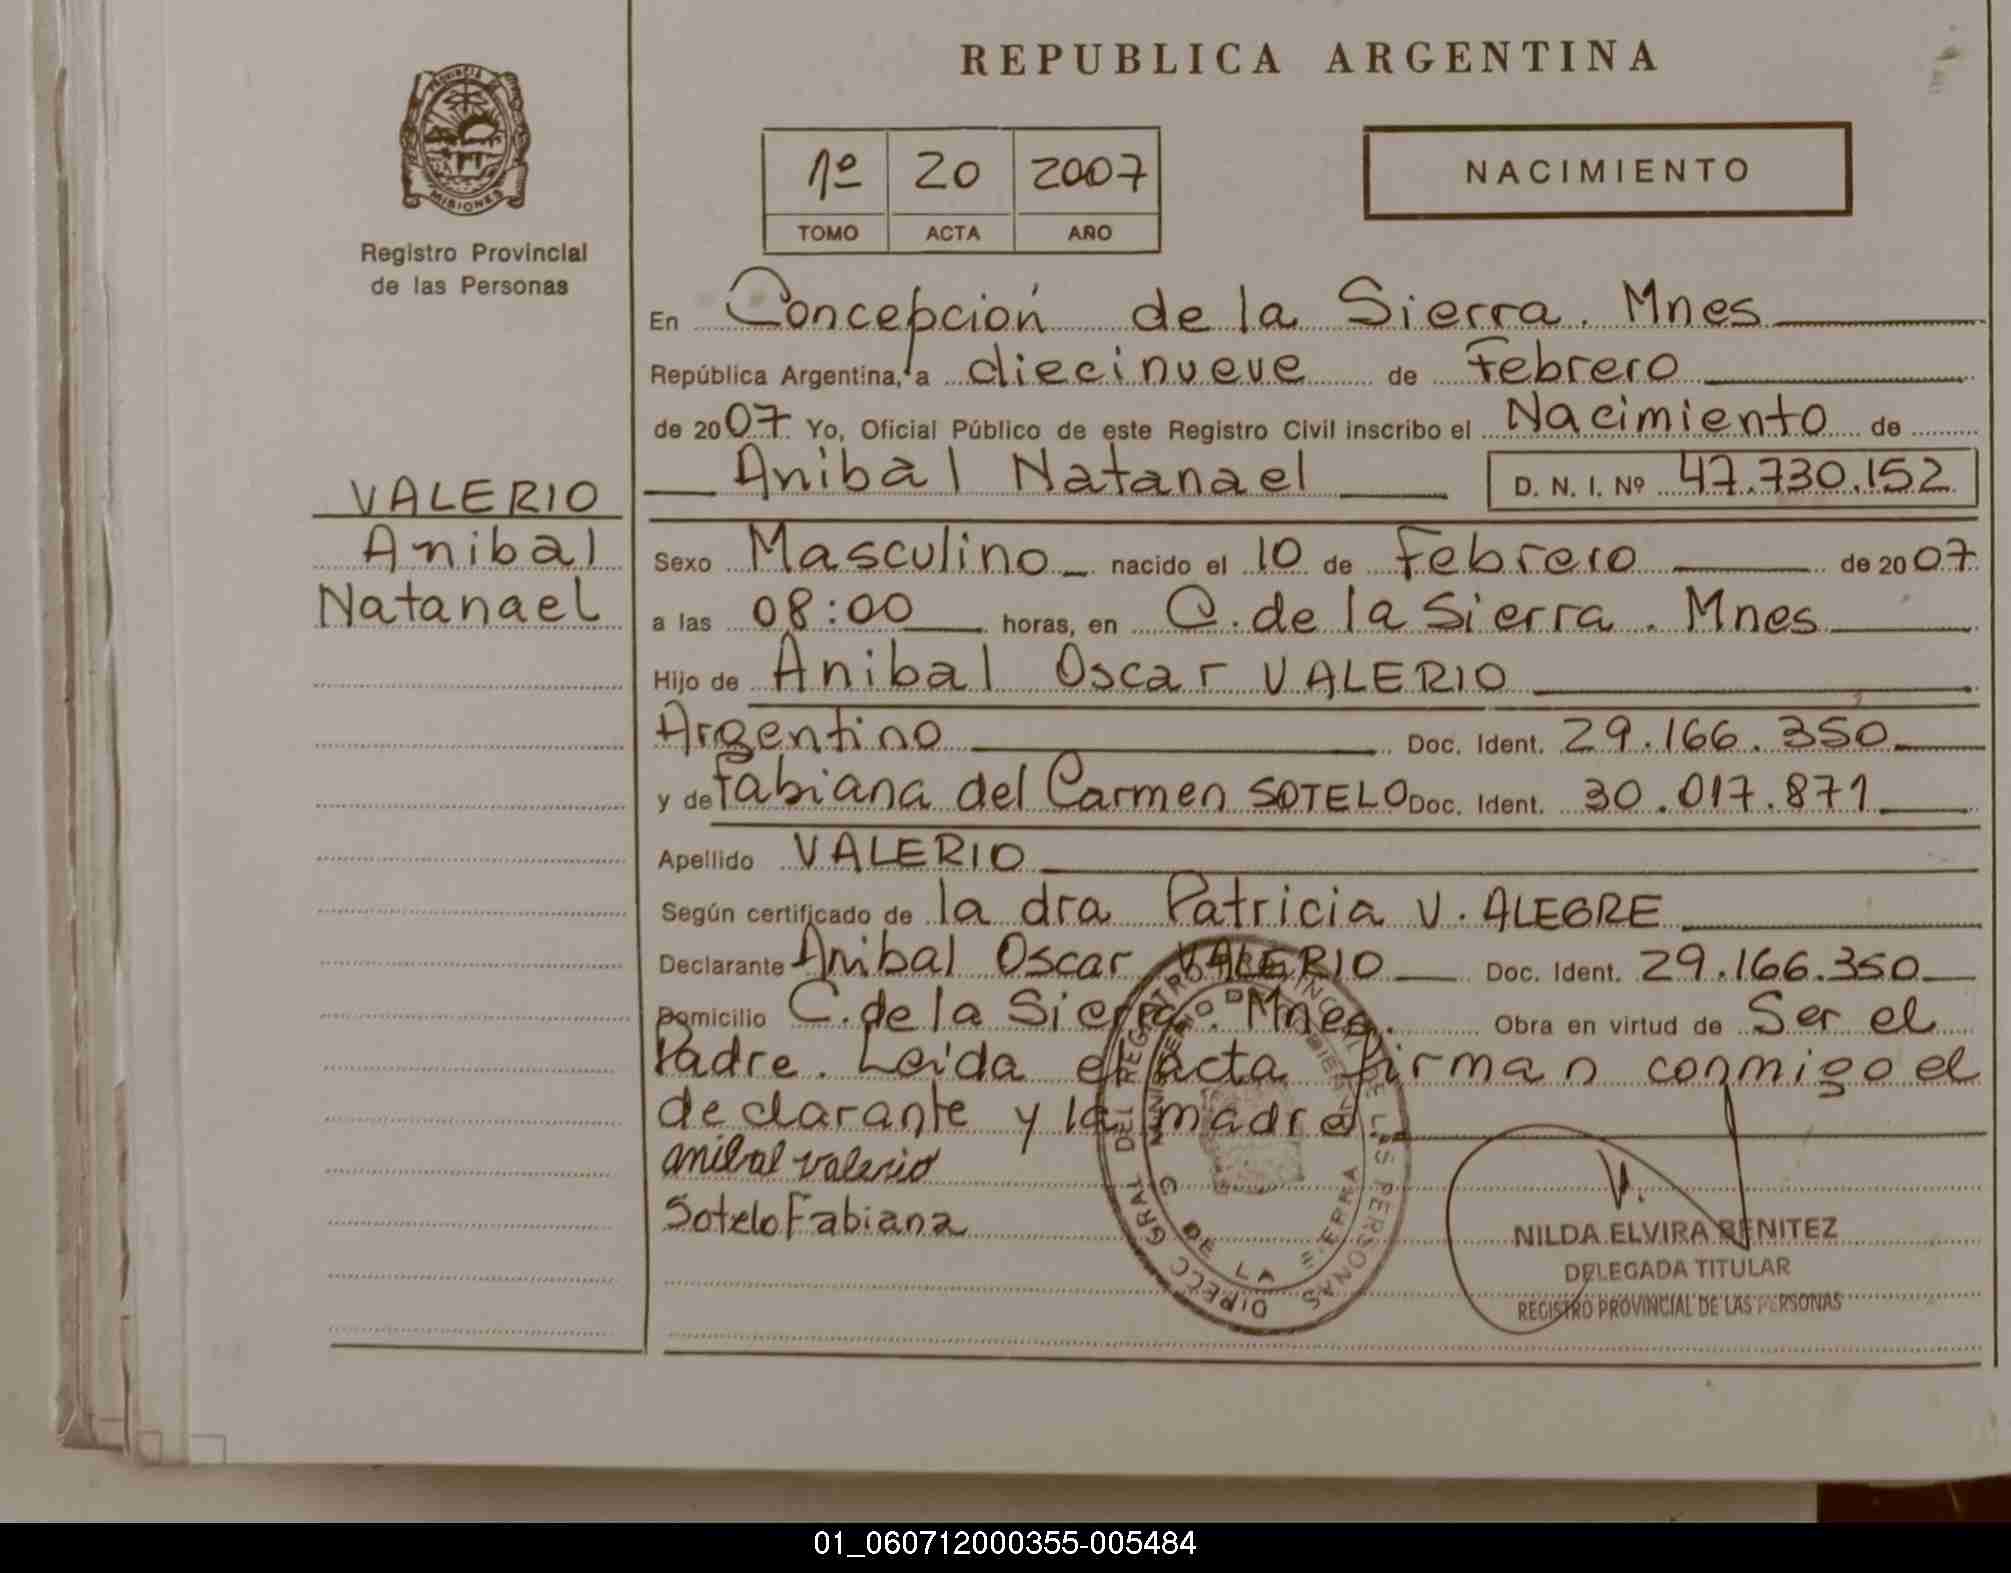 REPUBLICA ARGENTINA
PROVINCIA DE
MISIONES
Registro Provincial
de las Personas
1º 20 2007
TOMO ACTA AÑO
NACIMIENTO
VALERIO
Anibal
Natanael
En Concepción de la Sierra. Mnes
República Argentina, a diecinueve de Febrero
de 2007 Yo, Oficial Público de este Registro Civil inscribo el Nacimiento de
Anibal Natanael D. N. I. Nº 47.730.152
Sexo Masculino nacido el 10 de Febrero de 2007
a las 08:00 horas, en C. de la Sierra. Mnes
Hijo de Anibal Oscar VALERIO
Argentino Doc. Ident. 29.166.350
y de Fabiana del Carmen SOTELO Doc. Ident. 30.017.871
Apellido VALERIO
Según certificado de la dra Patricia V. ALEGRE
Declarante Anibal Oscar VALERIO Doc. Ident. 29.166.350
Domicilio C. de la Sierra. Mnes. Obra en virtud de Ser el
Padre. Leida el acta firman conmigo el
declarante y la madre
anibal valerio
Sotelo Fabiana
DIRECC GRAL DEL REGISTRO PROVINCIAL DE LAS PERSONAS
DE LA SIERRA
NILDA ELVIRA BENITEZ
DELEGADA TITULAR
REGISTRO PROVINCIAL DE LAS PERSONAS
01_060712000355-005484